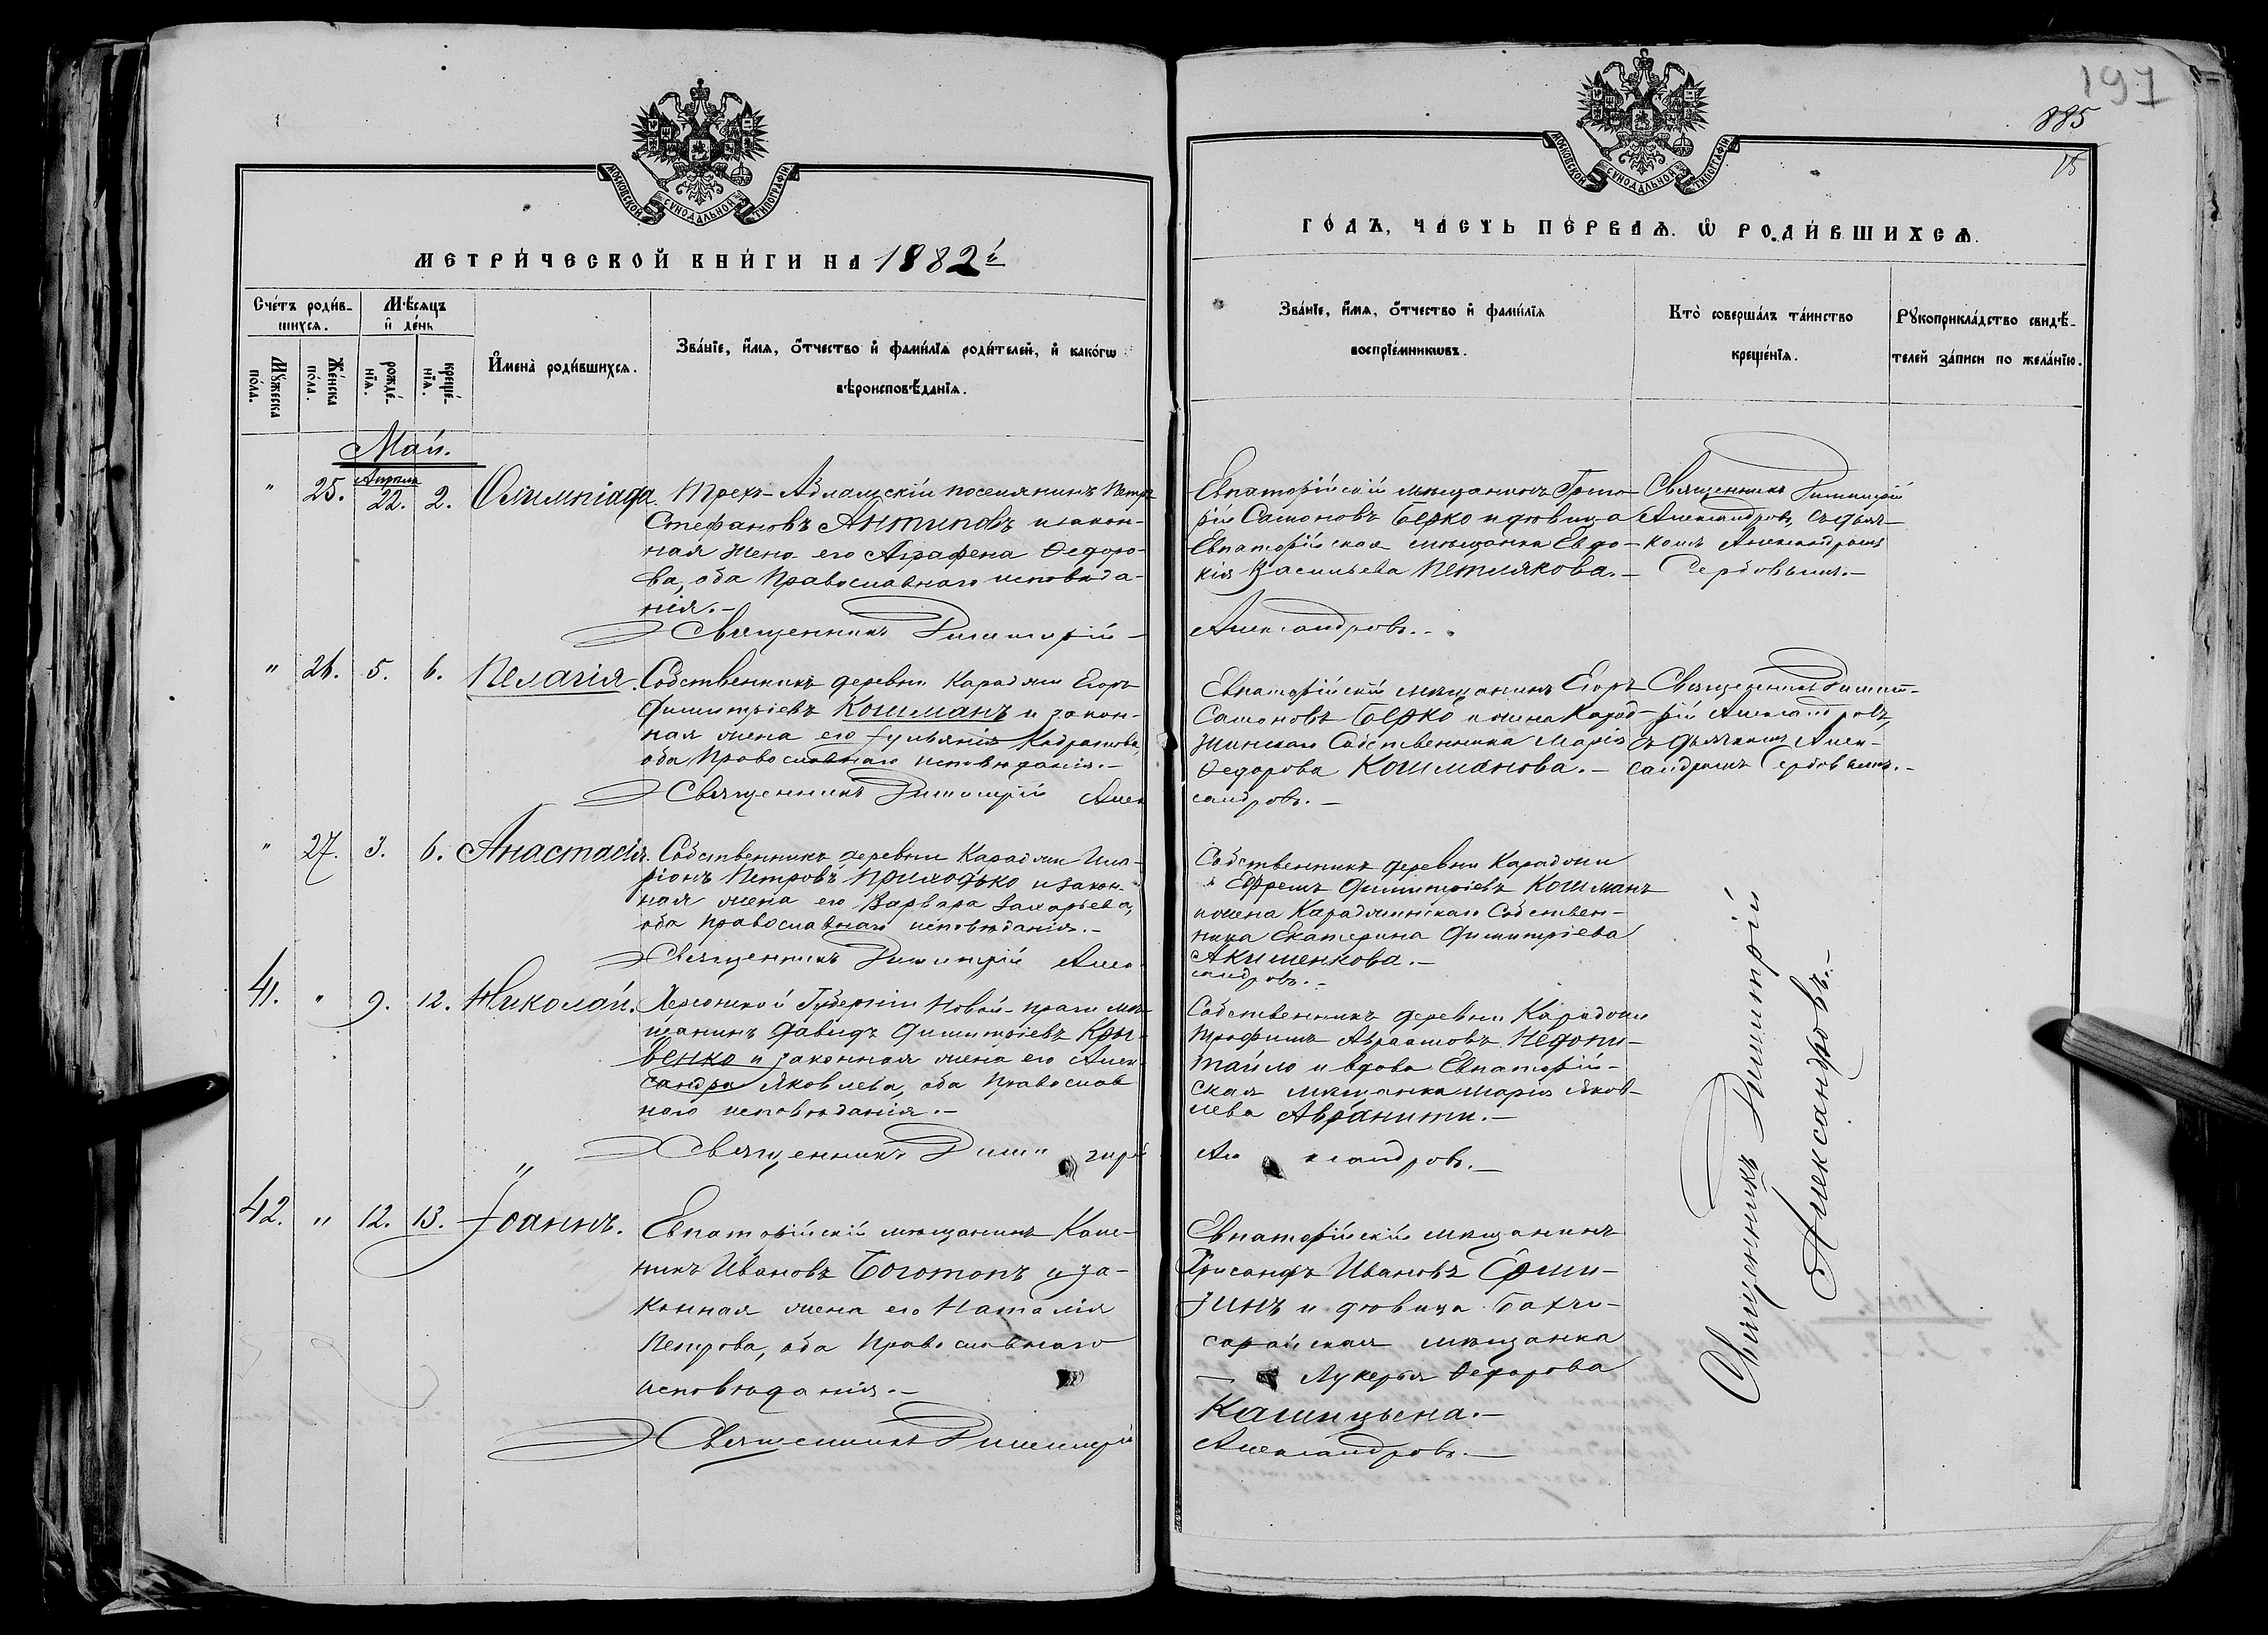 МОСКОВСКОЙ СѴНОДАЛЬНОЙ ТИПОГРАФІИ
МЕТРИ́ЧЕСКОЙ КНИ́ГИ НА 1882й
Сче́тъ роди́в-
шихсѧ.
Мѣ́сяцъ
и҆ де́нь
Мꙋ́жеска
по́ла.
Же́нска
по́ла.
рожде́-
нїѧ.
креще́-
нїѧ.
И҆мена̀ роди́вшихсѧ.
Зва́нїе, и҆́мѧ, ѻ҆́тчество и҆ фамилїѧ роди́телей, и҆ како́гѡ
вѣроисповѣ́данїѧ.
Май.
" 25. Апрѣля 22. 2. Олимпіада.
Трехъ-Абламскій поселянинъ Петръ
Стефановъ Антиповъ и закон-
ная жена его Аграфена Ѳедоро-
ва, оба Православнаго исповѣда-
нія.-
Священникъ Димитрій
" 26. 5. 6. Пелагія.
Собственникъ деревни Караджи Егоръ
Димитріевъ Кошманъ и закон-
ная жена его Іульянія Кодратова,
оба Православнаго исповѣданія.-
Священникъ Димитрій Алек
" 27. 3. 6. Анастасія.
Собственникъ деревни Караджи Ила-
ріонъ Петровъ Приходько и закон-
ная жена его Варвара Захарьева,
оба православнаго исповѣданія.-
Священникъ Димитрій Алек-
41. " 9. 12. Николай.
Херсонской Губерніи Новой-праги мѣ-
щанинъ Давидъ Димитріевъ Кри-
венко и законная жена его Алек-
сандра Яковлева, оба Православ
наго исповѣданія.-
Священникъ Димитрій
42. " 12. 13. Іоаннъ.
Евпаторійскій мѣщанинъ Кали-
никъ Ивановъ Боготопъ и за-
конная жена его Наталія
Петрова, оба Православнаго
исповѣданія.-
Священникъ Димитрій
197
885
15
МОСКОВСКОЙ СѴНОДАЛЬНОЙ ТИПОГРАФІИ
ГО́ДЪ, ЧА́СТЬ ПЕ́РВАѦ. Ѽ РОДИ́ВШИХСѦ.
Зва́нїе, и҆́мѧ, ѻ҆́тчество и҆ фами́лїѧ
воспрїе́мникѡвъ.
Кто̀ соверша́лъ та́инство
креще́нїѧ.
Рꙋкоприкла́дство свидѣ́-
телей за́писи по жела́нїю.
Евпаторійскій мѣщанинъ Григо-
рій Самоновъ Берко и дѣвица
Евпаторійская мѣщанка Евдо-
кія Васильева Петлякова.-
Александровъ.-
Священникъ Димитрій
Александровъ, съ дьяч-
комъ Александромъ
Сербовымъ.-
Евпаторійскій мѣщанинъ Егоръ
Самоновъ Берко и жена Карад-
жинскаго Собственника Марія
Ѳедорова Кошманова.-
сандровъ.-
Священникъ Димит-
рій Александровъ,
съ дьячкомъ Алек-
сандромъ Сербовымъ.-
Собственникъ деревни Караджи
Ефремъ Димитріевъ Кошманъ
и жена Караджинскаго Собствен-
ника Екатерина Димитріева
Акименкова.-
сандровъ.-
Собственникъ деревни Караджи
Трофимъ Авраамовъ Недопи-
тайло и вдова Евпаторій-
ская мѣщанка Марія Яков-
лева Авранити.-
Александровъ.-
Евпаторійскій мѣщанинъ
Хрисанфъ Ивановъ
и дѣвица Бахчи-
сарайская мѣщанка
Лукерья Ѳедорова
Александровъ.-
Священникъ Димитрій
Александровъ.-